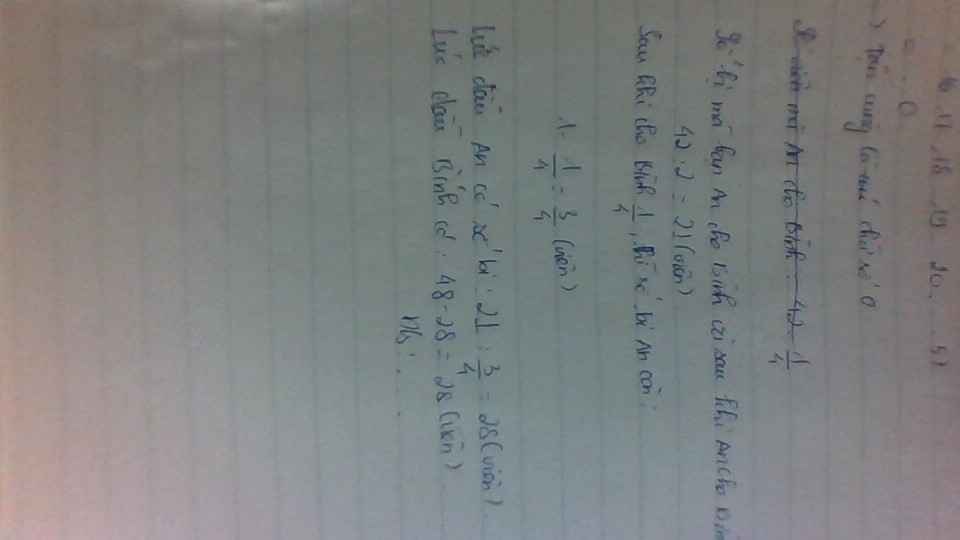 16 17 . 18 . 19 . 20 . ... 57
= ... 0
) Tận cùng là chữ số 0
Số viên mà An cho Bình : 42 . 1/4
Số bi mà bạn An cho Bình và sau khi An cho Bìn
42 : 2 = 21 (viên)
Sau khi cho Bình 1/4, thì số bi An còn :
1 - 1/4 = 3/4 (viên)
Lúc đầu An có số bi : 21 : 3/4 = 28 (viên)
Lúc đầu Bình có : 48 - 28 = 28 (viên)
Đs : . . .